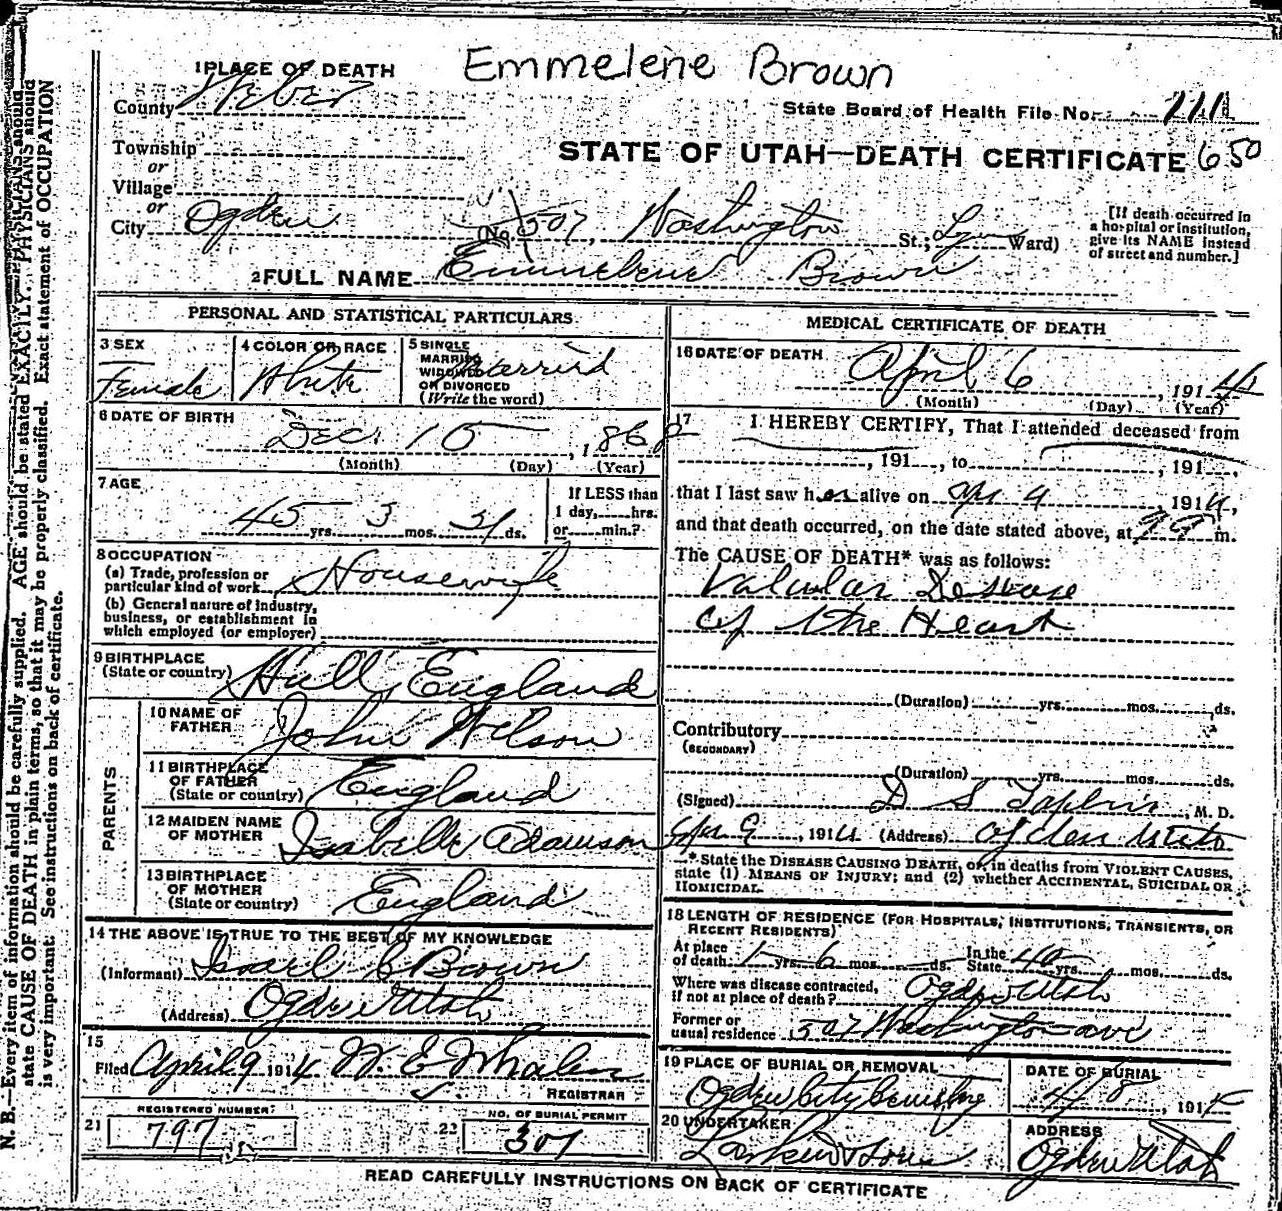 Emmelene Brown
1 PLACE OF DEATH
County Weber
State Board of Health File No. 111
Township
or
STATE OF UTAH—DEATH CERTIFICATE 650
Village
or
City Ogden (No. 507, Washington St.; Ward)
[If death occurred in
a hospital or institution,
give its NAME instead
of street and number.]
2 FULL NAME Emmelene Brown
PERSONAL AND STATISTICAL PARTICULARS
3 SEX
Female
4 COLOR OR RACE
White
5 SINGLE
MARRIED
WIDOWED
OR DIVORCED
(Write the word)
Married
6 DATE OF BIRTH
Dec. 15, 1868
(Month) (Day) (Year)
7 AGE
45 yrs. 3 mos. ds.
If LESS than
1 day, hrs.
or min.?
8 OCCUPATION
(a) Trade, profession or
particular kind of work Housewife
(b) General nature of industry,
business, or establishment in
which employed (or employer)
9 BIRTHPLACE
(State or country) Hull, England
PARENTS
10 NAME OF
FATHER John Wilson
11 BIRTHPLACE
OF FATHER
(State or country) England
12 MAIDEN NAME
OF MOTHER Isabelle Adamson
13 BIRTHPLACE
OF MOTHER
(State or country) England
14 THE ABOVE IS TRUE TO THE BEST OF MY KNOWLEDGE
(Informant) Israel C Brown
(Address) Ogden Utah
15
Filed April 9 1914 W. E. Whalen
REGISTRAR
21 REGISTERED NUMBER
797
22 NO. OF BURIAL PERMIT
307
MEDICAL CERTIFICATE OF DEATH
16 DATE OF DEATH
April 6, 1914
(Month) (Day) (Year)
17 I HEREBY CERTIFY, That I attended deceased from
, 191 , to , 191 ,
that I last saw her alive on Apr 4 1914,
and that death occurred, on the date stated above, at m.
The CAUSE OF DEATH* was as follows:
Valvular Disease
of the Heart
(Duration) yrs. mos. ds.
Contributory
(SECONDARY)
(Duration) yrs. mos. ds.
(Signed) D S M. D.
Apr 9, 1914 (Address) Ogden Utah
* State the DISEASE CAUSING DEATH, or, in deaths from VIOLENT CAUSES,
state (1) MEANS OF INJURY; and (2) whether ACCIDENTAL, SUICIDAL OR
HOMICIDAL.
18 LENGTH OF RESIDENCE (FOR HOSPITALS, INSTITUTIONS, TRANSIENTS, OR
RECENT RESIDENTS)
At place
of death 1 yrs. 6 mos. ds.
In the
State 40 yrs. mos. ds.
Where was disease contracted,
if not at place of death? Ogden Utah
Former or
usual residence 507 Washington ave
19 PLACE OF BURIAL OR REMOVAL
Ogden City Cemetery
DATE OF BURIAL
4/8, 1914
20 UNDERTAKER
Larkin & Sons
ADDRESS
Ogden Utah
READ CAREFULLY INSTRUCTIONS ON BACK OF CERTIFICATE
N. B.—Every item of information should be carefully supplied. AGE should be stated EXACTLY. PHYSICIANS should
state CAUSE OF DEATH in plain terms, so that it may be properly classified. Exact statement of OCCUPATION
is very important. See instructions on back of certificate.